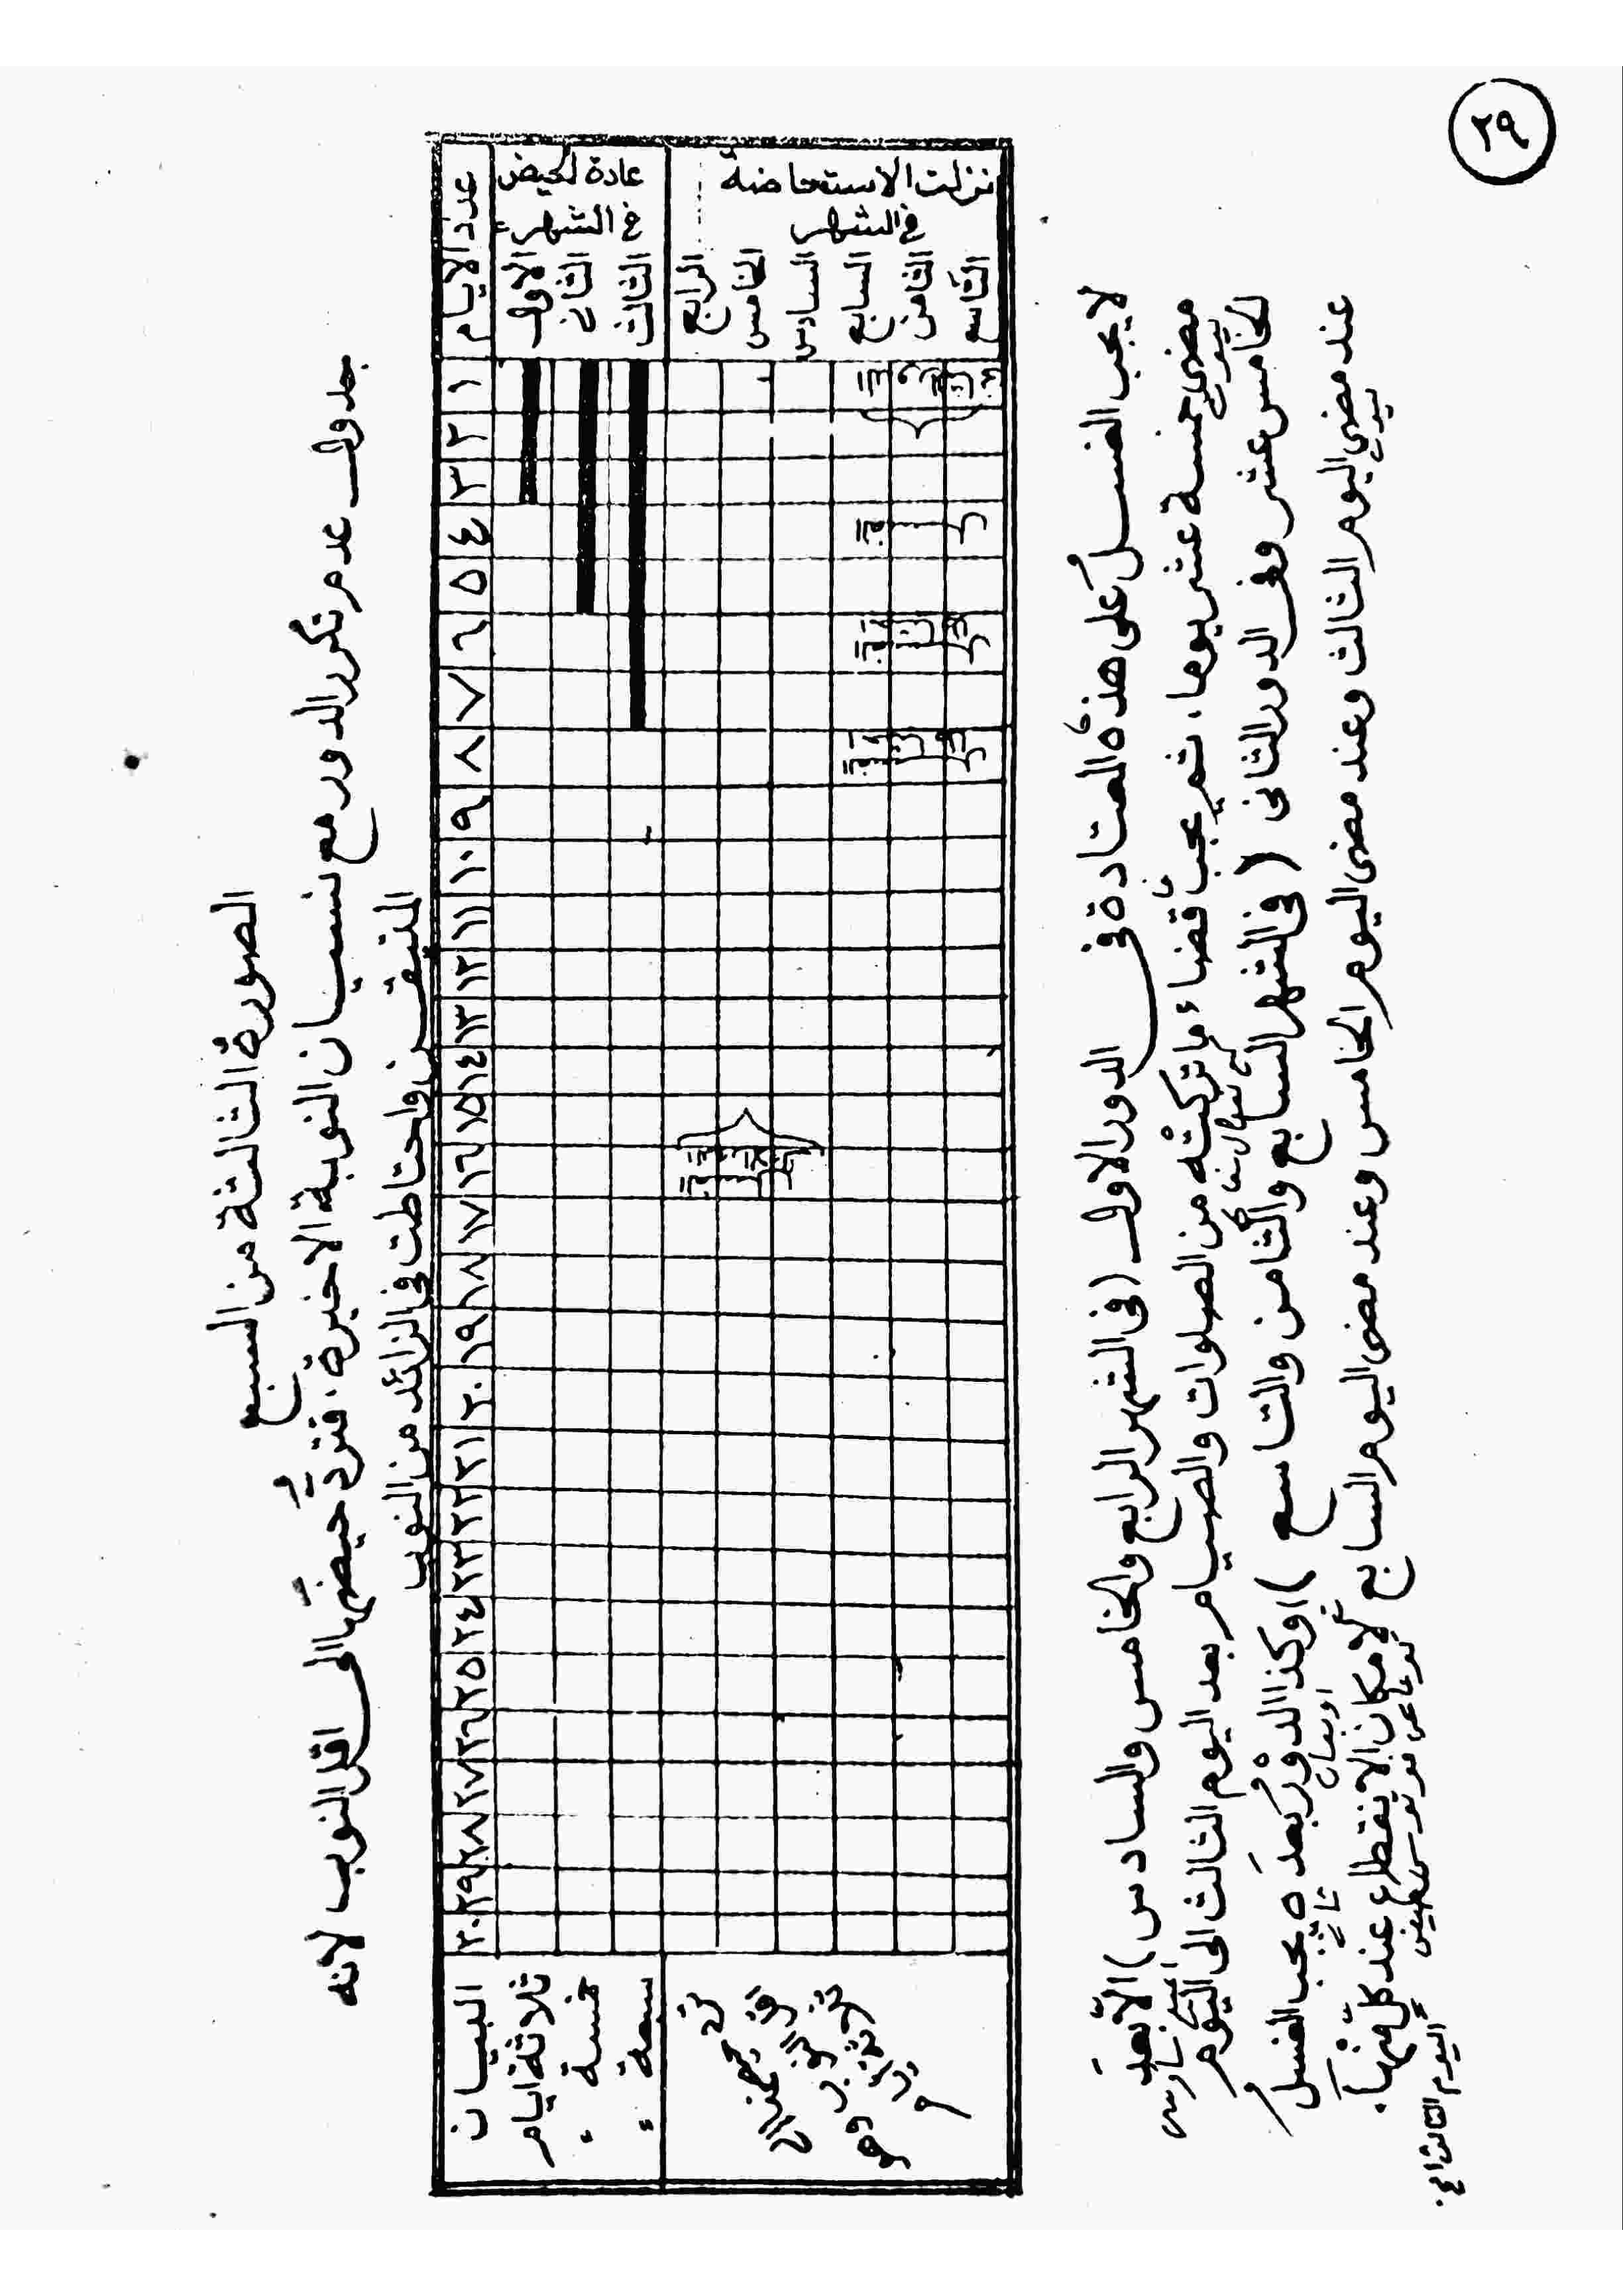 ٢٩
الصورة الثالثة من السبع
جدول عدم تكرر الدور مع نسيان النوبة الاخيرة . فتردّ حيضَها الى اقل النوب لانه
المتيقن واحتاطت فى الزائد من النوب
عدد الايام ١ ٢ ٣ ٤ ٥ ٦ ٧ ٨ ٩ ١٠ ١١ ١٢ ١٣ ١٤ ١٥ ١٦ ١٧ ١٨ ١٩ ٢٠ ٢١ ٢٢ ٢٣ ٢٤ ٢٥ ٢٦ ٢٧ ٢٨ ٢٩ ٣٠ البيان
عادة الحيض
فى الشهر =
الاول ثلاثة ايام
الثانى خمسة =
الثالث سبعة =
نزلت الاستحاضة
فى الشهر
الرابع
الخامس
السادس
السابع
الثامن
التاسع
لا يجب الغسلُ على هذه المعتادة فى الدور الاول (فى الشهر الرابع والخامس والسادس) الّا بعدَ
مضى خمسة عشر يوما، ثم يجب قضاء ما تركتْه من الصلوات والصيام بعد اليوم الثالث الى اليوم
الخامس عشر وفى الدور الثانى (فى الشهر السابع والثامن والتاسع) وكذا الدوْرُ بعدَه يجب الغسلُ
عند مضى اليوم الثالث وعند مضى اليوم الخامس وعند مضى اليوم السابع لامكان الانقطاع عند كلّ منها.